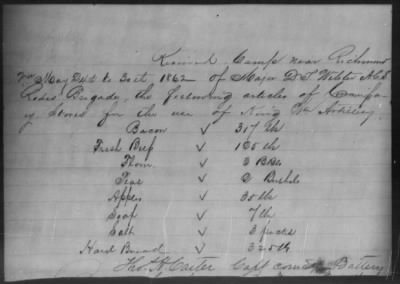 Received Camp near Richmond
from May 24th to 30th 1862 of Major D T Webster A.C.S
Rodes Brigade, the following articles of
Stores for the use of King Wm Artillery
Bacon ✓ 317 lb
Fresh Beef ✓ 160 lb
Flour ✓ 3 Bbls
Peas ✓ 2 Bushels
Apples ✓ 30 lb
Soap ✓ 7 lb
Salt ✓ 3 pecks
Hard Bread ✓ 320 lb
Tho. H. Carter Capt comdg Battery